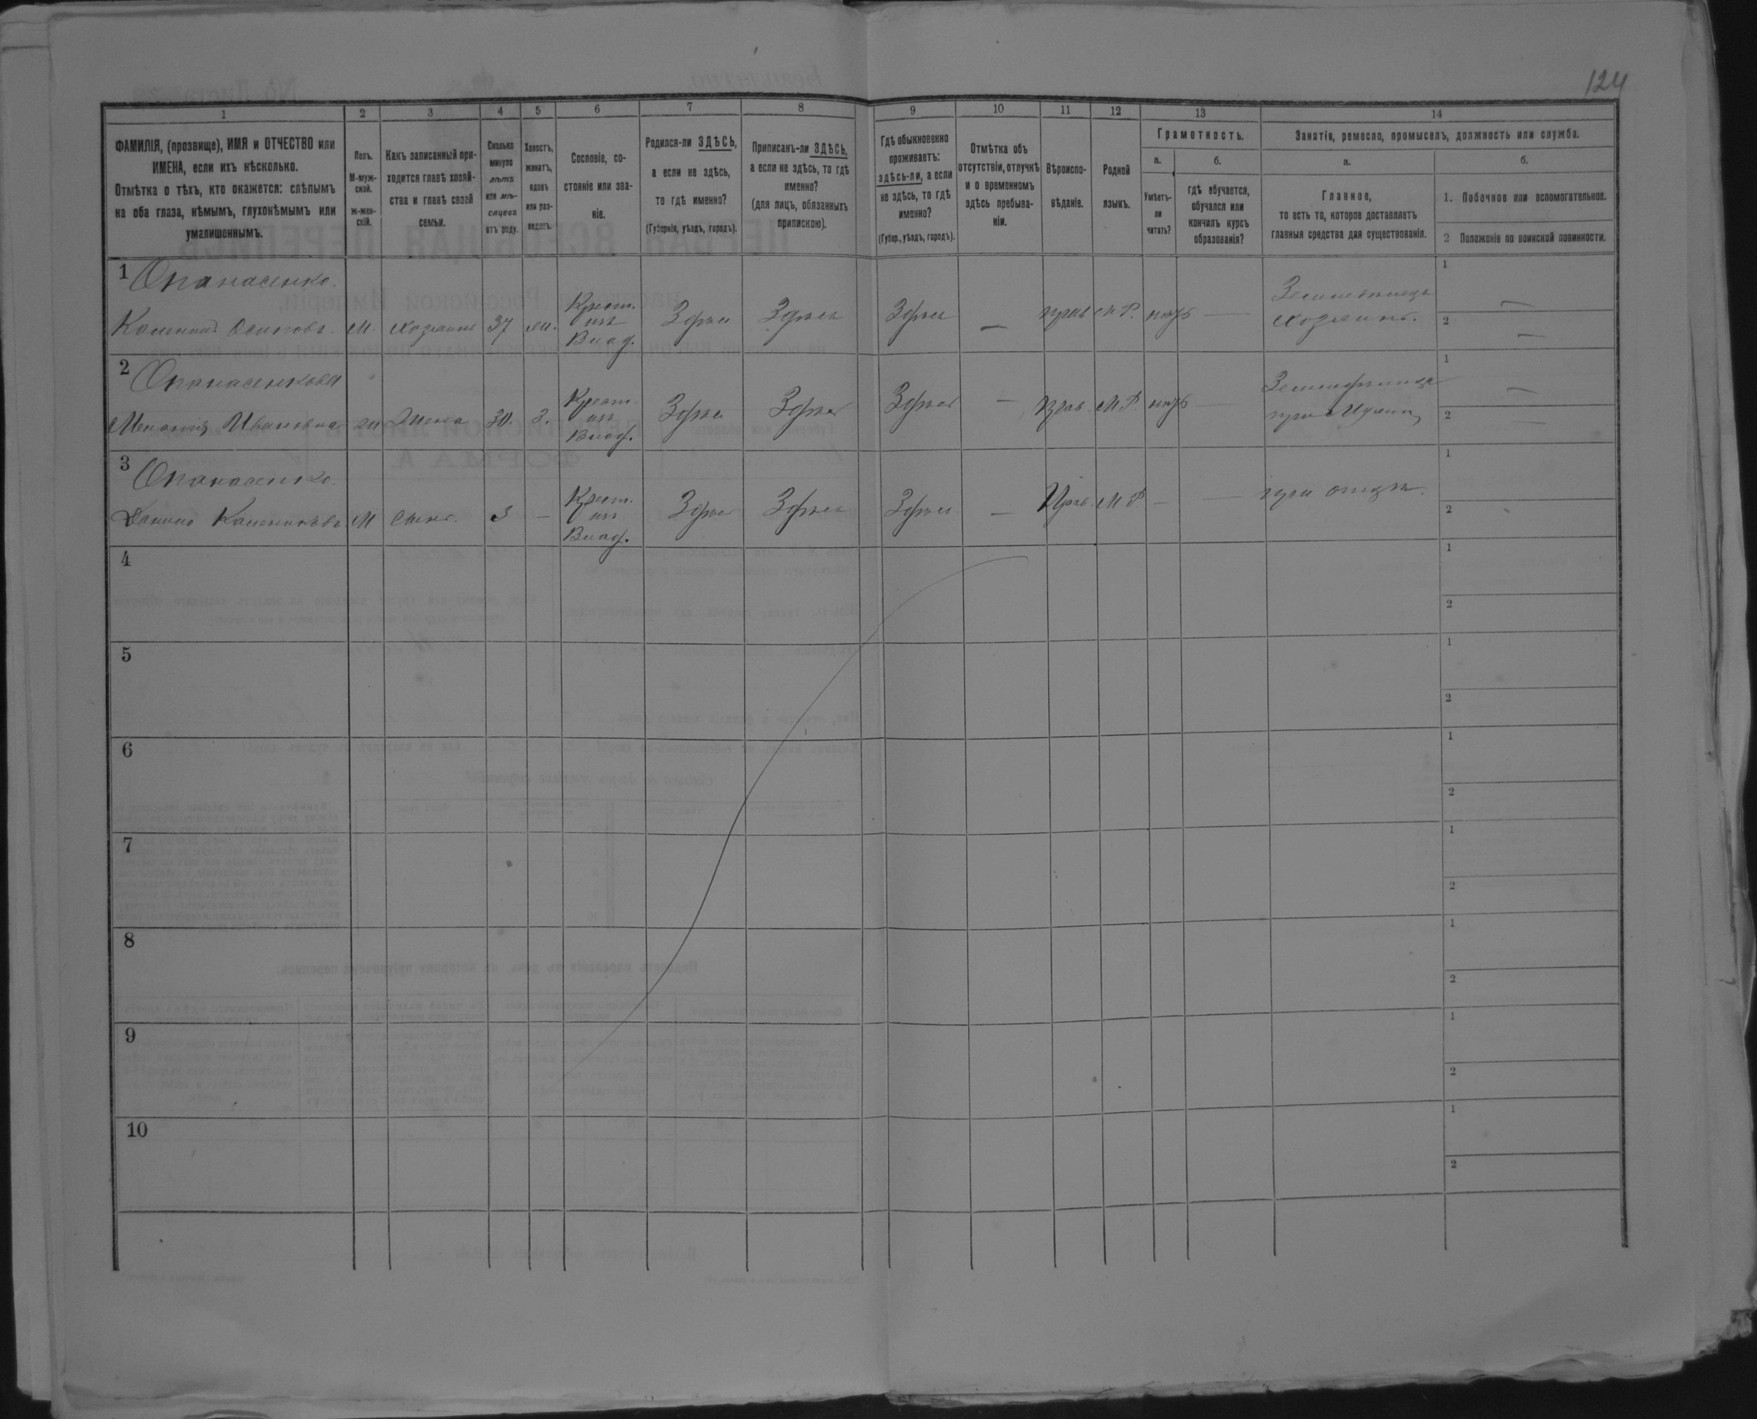 124
1 2 3 4 5 6 7 8 9 10 11 12 13 14
ФАМИЛІЯ, (прозвище), ИМЯ и ОТЧЕСТВО или
ИМЕНА, если ихъ нѣсколько.
Отмѣтка о тѣхъ, кто окажется: слѣпымъ
на оба глаза, нѣмымъ, глухонѣмымъ или
умалишеннымъ.
Полъ.
М-муж-
ской.
ж-жен-
скій.
Какъ записанный при-
ходится главѣ хозяй-
ства и главѣ своей
семьи.
Сколько
минуло
лѣтъ
или мѣ-
сяцевъ
отъ роду.
Холостъ,
женатъ,
вдовъ
или раз-
веденъ.
Сословіе, со-
стояніе или зва-
ніе.
Родился-ли ЗДѢСЬ,
а если не здѣсь,
то гдѣ именно?
(Губернія, уѣздъ, городъ).
Приписанъ-ли ЗДѢСЬ,
а если не здѣсь, то гдѣ
именно?
(для лицъ, обязанныхъ
припискою).
Гдѣ обыкновенно
проживаетъ:
здѣсь-ли, а если
не здѣсь, то гдѣ
именно?
(Губер., уѣздъ, городъ).
Отмѣтка объ
отсутствіи, отлучкѣ
и о временномъ
здѣсь пребыва-
ніи.
Вѣроиспо-
вѣданіе.
Родной
языкъ.
Грамотность.
а.
Умѣетъ-
ли
читать?
б.
гдѣ обучается,
обучался или
кончилъ курсъ
образованія?
Занятіе, ремесло, промыселъ, должность или служба.
а.
Главное,
то есть то, которое доставляетъ
главныя средства для существованія.
б.
1. Побочное или вспомогательное.
2 Положеніе по воинской повинности.
1 Опанасенко
М. хозяинъ 37 Крест. изъ Влад. Здѣсь Здѣсь Здѣсь — прав М.Р. нѣтъ —
хозяинъ.
1 —
2 —
2 Опанасенкова
Ивановна жена 30. З. Крест. изъ Влад. Здѣсь Здѣсь Здѣсь — Прав. М.Р. нѣтъ —
при мужѣ
1 —
2 —
3 Опанасенко
М сынъ. 3 — Крест. изъ Влад. Здѣсь Здѣсь Здѣсь — Прав. М.Р. — — при отцѣ.
1
2
4
1
2
5
1
2
6
1
2
7
1
2
8
1
2
9
1
2
10
1
2